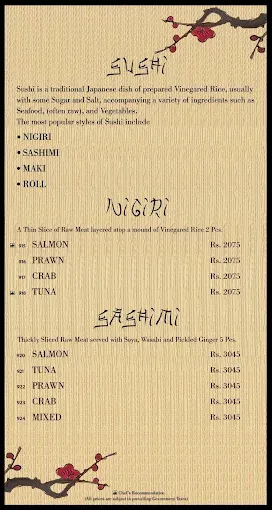 SUSHI
Sushi is a traditional Japanese dish of prepared Vinegared Rice, usually
with some Sugar and Salt, accompanying a variety of ingredients such as
Seafood, (often raw), and Vegetables.
The most popular styles of Sushi include
• NIGIRI
• SASHIMI
• MAKI
• ROLL
NIGIRI
A Thin Slice of Raw Meat layered atop a mound of Vinegared Rice 2 Pcs.
915 SALMON Rs. 2075
916 PRAWN Rs. 2075
917 CRAB Rs. 2075
918 TUNA Rs. 2075
SASHIMI
Thickly Sliced Raw Meat served with Soya, Wasabi and Pickled Ginger 5 Pcs.
920 SALMON Rs. 3045
921 TUNA Rs. 3045
922 PRAWN Rs. 3045
923 CRAB Rs. 3045
924 MIXED Rs. 3045
Chef's Recommendation
(All prices are subject to prevailing Government Taxes)